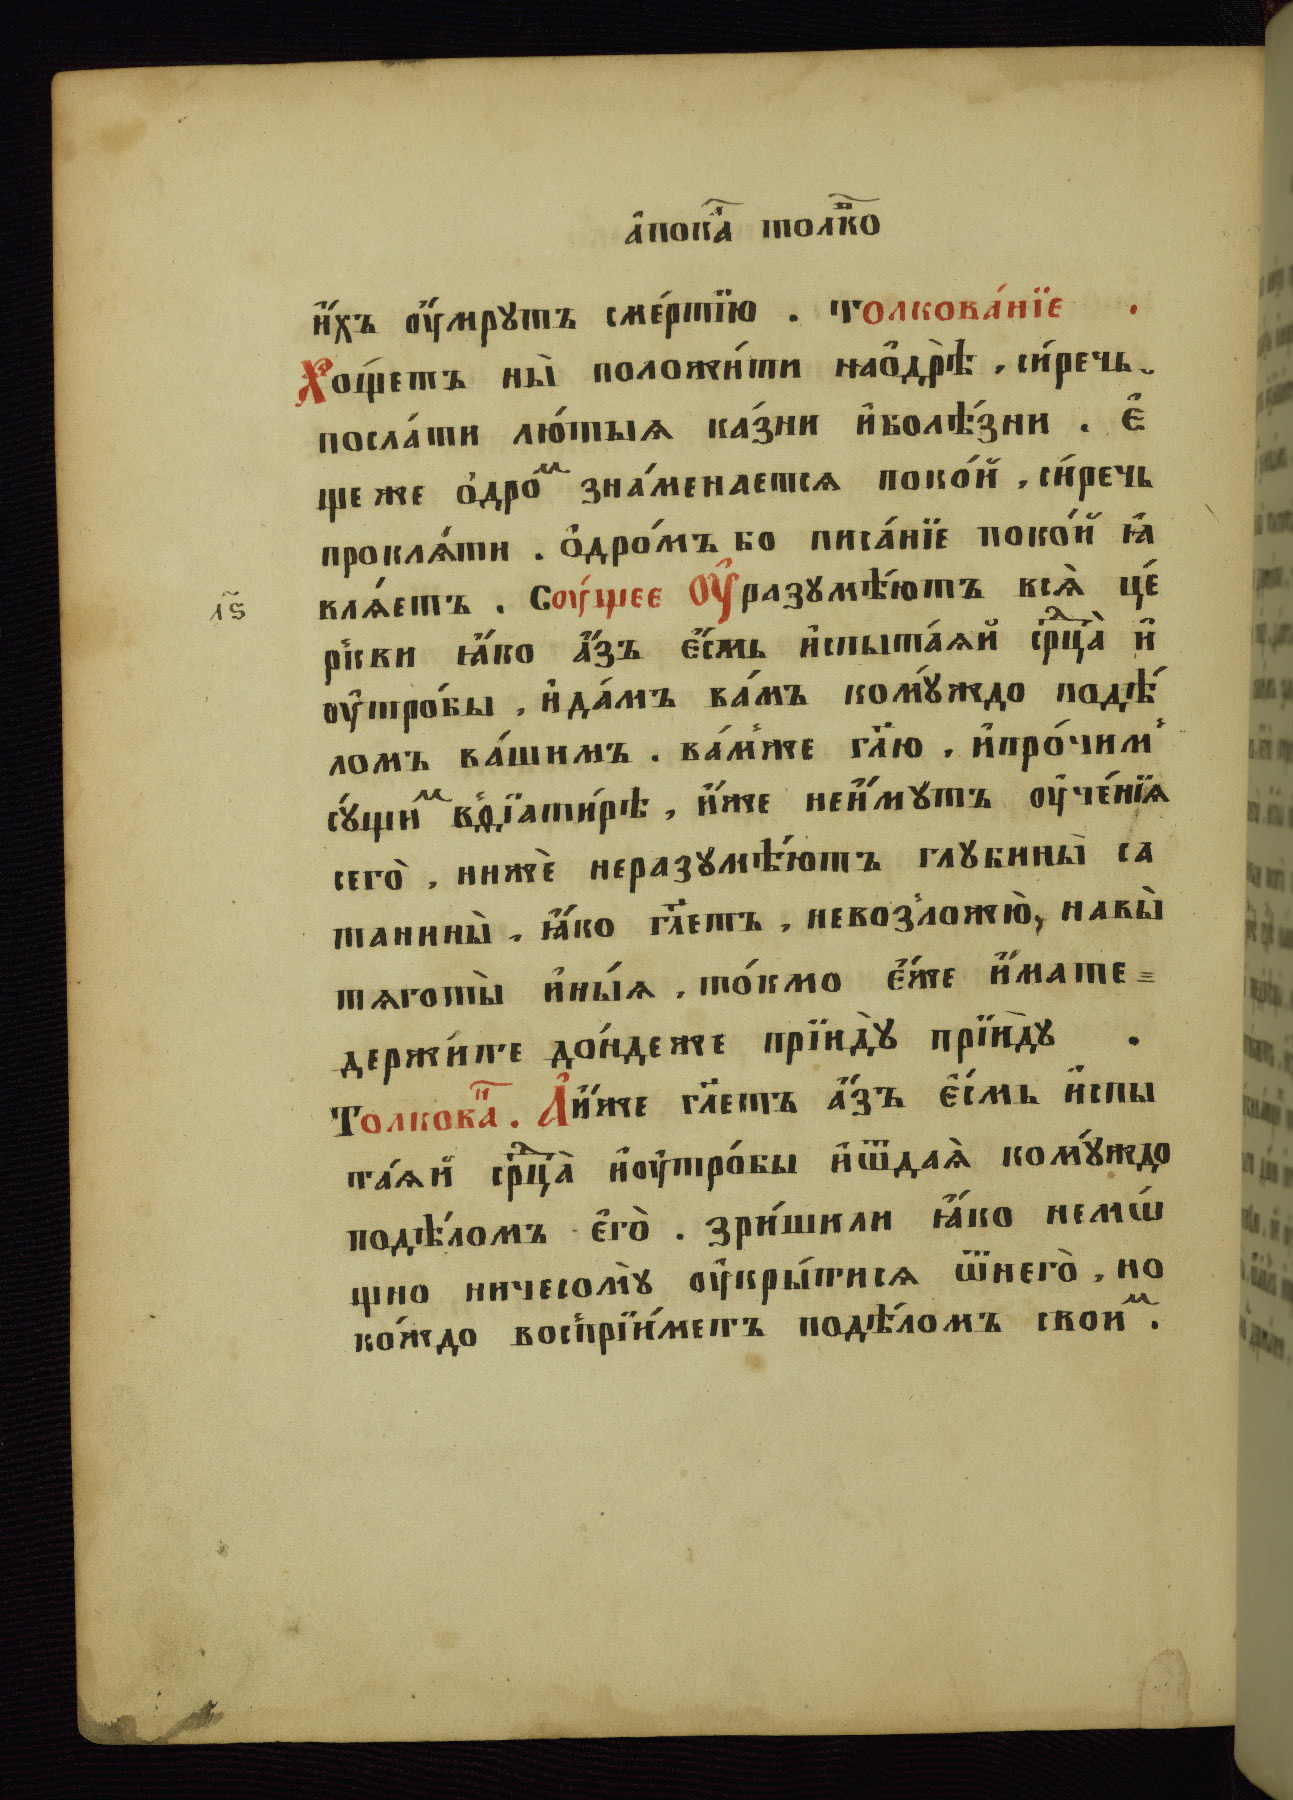 а҆пока̑ толко̑в
и҆́хъ ᲂу҆́мрꙋтъ сме́ртїю . Толкова́нїе .
Хо́щетъ ны̀ положи́ти нао҆дрѣ̀ , си́речь
посла́ти лю́тыѧ ка́зни и҆болѣ́зни . Е҆
ще же о҆дро́ⷨ зна́менаетсѧ поко́й , си́речь
проклѧ́ти . О҆дро́мъ бо писа́нїе поко́й ꙗ҆
влѧ́етъ . Сꙋ́щее Оу҆разꙋмѣ́ютъ всѧ̀ це́
ркви ꙗ҆́ко а҆́зъ е҆́смь и҆спыта́ѧй срⷣца̀ и҆
лѕ҃
ᲂу҆тро́бы , и҆да́мъ ва́мъ комꙋ́ждо подѣ́
ломъ ва́шимъ . ва́мже гл҃ю , и҆про́чим
сꙋ́щиⷨ вѳїати́рѣ , и҆́же неи҆́мꙋтъ ᲂу҆че́нїѧ
сего̀ , нижѐ неразꙋмѣ́ютъ глꙋбины̀ са
танины̀ , ꙗ҆́ко гл҃етъ , невозложю̀ , навы̀
тѧготы̀ и҆ны́ѧ , то́кмо е҆́же и҆́мате =
держи́те до́ндеже прїидꙋ̀ прїидꙋ̀ .
Толковаⷩ҇ . А҆и҆́же гл҃етъ а҆́зъ е҆́смь и҆спы
та́ѧй срⷣца̀ и҆ᲂу҆тро́бы и҆ѿдаѧ̀ комꙋ́ждо
подѣ́ломъ е҆го̀ . зри́шили ꙗ҆́ко немѡ́
щно ничесомꙋ̀ ᲂу҆кры́тисѧ ѿнего̀ , но
ко́ждо воспрїи́метъ подѣ́ломъ своиⷨ .